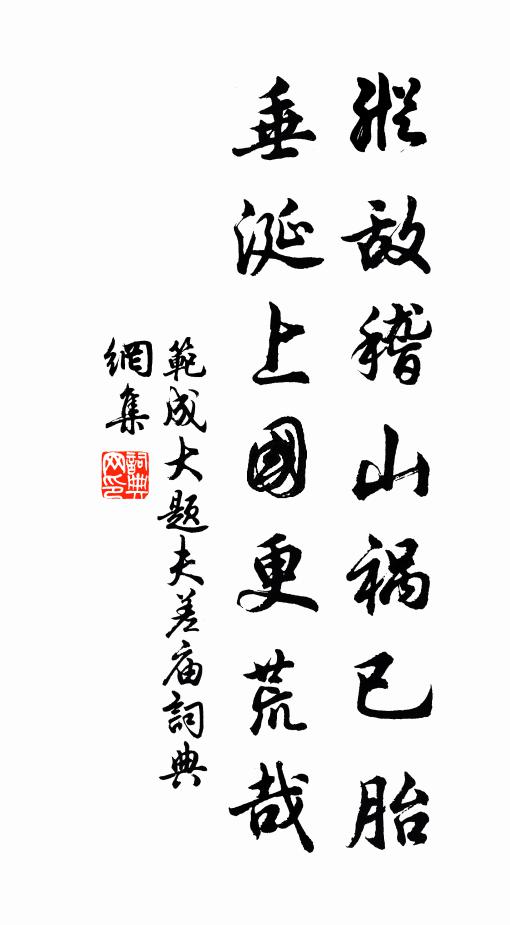 縱敌稽山祸已胎
垂涎上國更荒哉
範成大题夫差庙詞典
網集
詞典网印